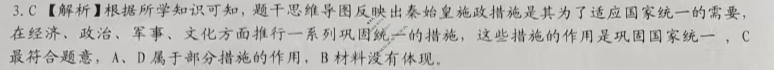 3. C 【解析】根据所学知识可知，题干思维导图反映出秦始皇施政措施是其为了适应国家统一的需要，
在经济、政治、军事、文化方面推行一系列巩固统一的措施，这些措施的作用是巩固国家统一，C
最符合题意，A、D 属于部分措施的作用，B 材料没有体现。